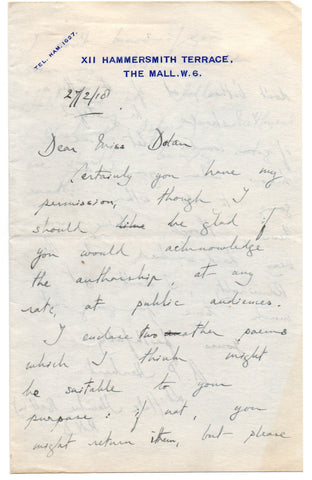 TEL. HAM. 1627.
XII HAMMERSMITH TERRACE,
THE MALL. W. 6.
27/2/18
Dear Miss Dolan
Certainly you have my
permission, though I
should like be glad if
you would acknowledge
the authorship, at any
rate, at public audiences.
I enclose two other poems
which I think might
be suitable to your
purpose: if not, you
might return them, but please